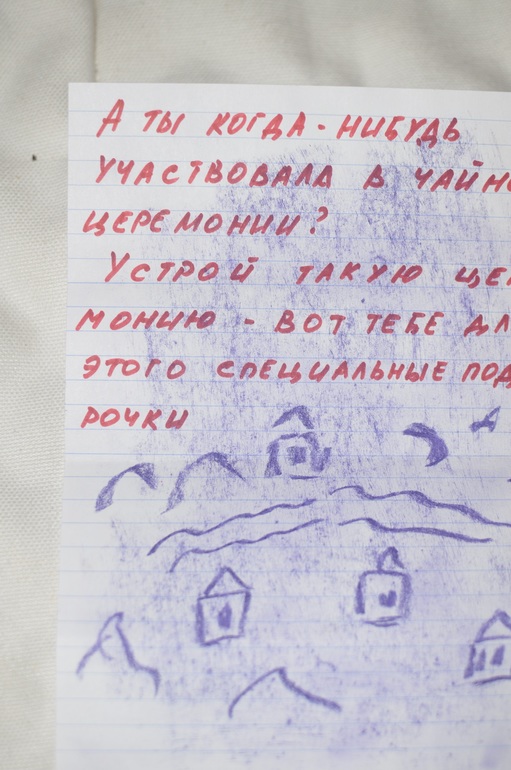 А ТЫ КОГДА-НИБУДЬ
УЧАСТВОВАЛА В ЧАЙНО
ЦЕРЕМОНИИ?
УСТРОЙ ТАКУЮ ЦЕР
МОНИЮ - ВОТ ТЕБЕ ДЛ
ЭТОГО СПЕЦИАЛЬНЫЕ ПОД
РОЧКИ